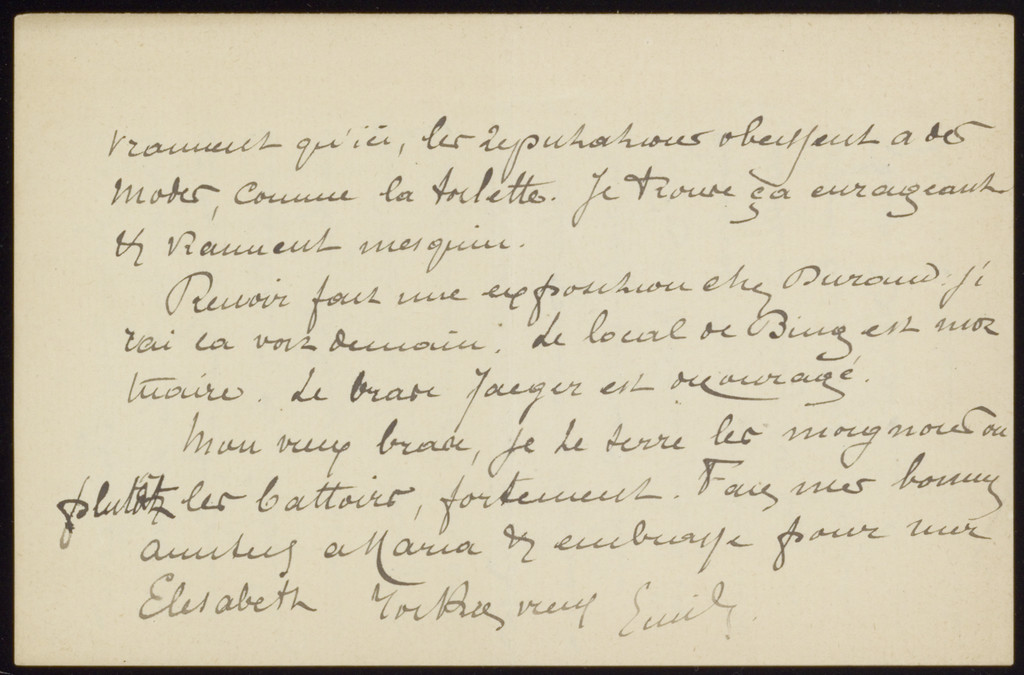 vraiment qu'ici, les réputations obeissent a des
modes, comme la toilette. Je trouve ça enrageant
& vraiment mesquin.
Renoir fait une exposition chez Durand. j'i
rai la voir demain. Le local de Bing est mor
tuaire. Le brave Jaeger est découragé.
Mon vieux brave, je te serre les moignons ou
plutôt les battoirs, fortement. Fais mes bonnes
amitiés a Maria & embrasse pour moi
Elisabeth vieux Emile